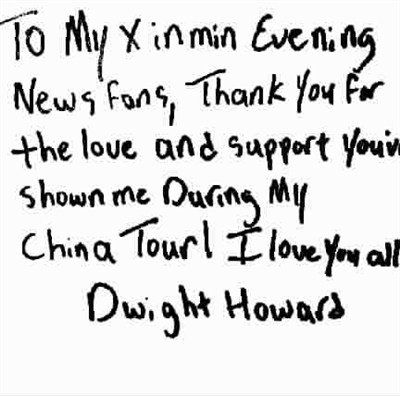 To My Xinmin Evening
News Fans, Thank You For
the love and support You'v
shown me During My
China Tour! I love You all
Dwight Howard